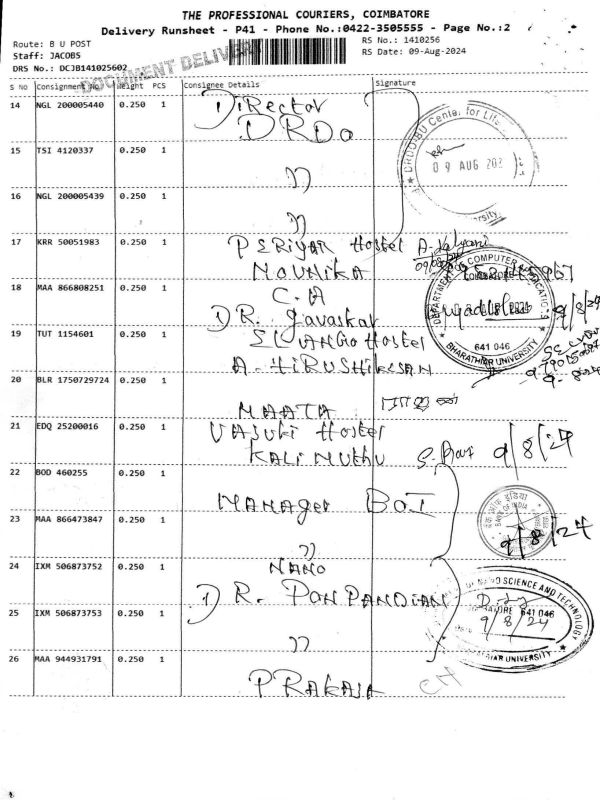 THE PROFESSIONAL COURIERS, COIMBATORE
Delivery Runsheet - P41 - Phone No.:0422-3505555 - Page No.:2
Route: B U POST
RS No.: 1410256
Staff: JACOBS
RS Date: 09-Aug-2024
DRS No.: DCJB141025602
DOCUMENT DELIVERY
S No Consignment No. Weight PCS Consignee Details Signature
14 NGL 200005440 0.250 1 Director
DRDO
DRDO-BU Center for Life
09 AUG 202
15 TSI 4120337 0.250 1 ))
16 NGL 200005439 0.250 1 ))
17 KRR 50051983 0.250 1 PERIYAR Hostel A. Kalyani
MOUNIKA
18 MAA 866808251 0.250 1 C.A
DR. Gavaskar
DEPARTMENT OF COMPUTER APPLICATIONS
641 046
BHARATHIAR UNIVERSITY
9/8/24
19 TUT 1154601 0.250 1 Hostel
20 BLR 1750729724 0.250 1
MAATA
21 EDQ 25200016 0.250 1 VASUKI Hostel
KALIMUTHU 9/8/24
22 BOD 460255 0.250 1
MANAGER BOI
23 MAA 866473847 0.250 1 ))
BANK OF INDIA
9/8/24
24 IXM 506873752 0.250 1 NANO
DR. PONPANDIAN
NANO SCIENCE AND TECHNOLOGY
641 046
9/8/24
BHARATHIAR UNIVERSITY
25 IXM 506873753 0.250 1 ))
26 MAA 944931791 0.250 1
PRAKASH